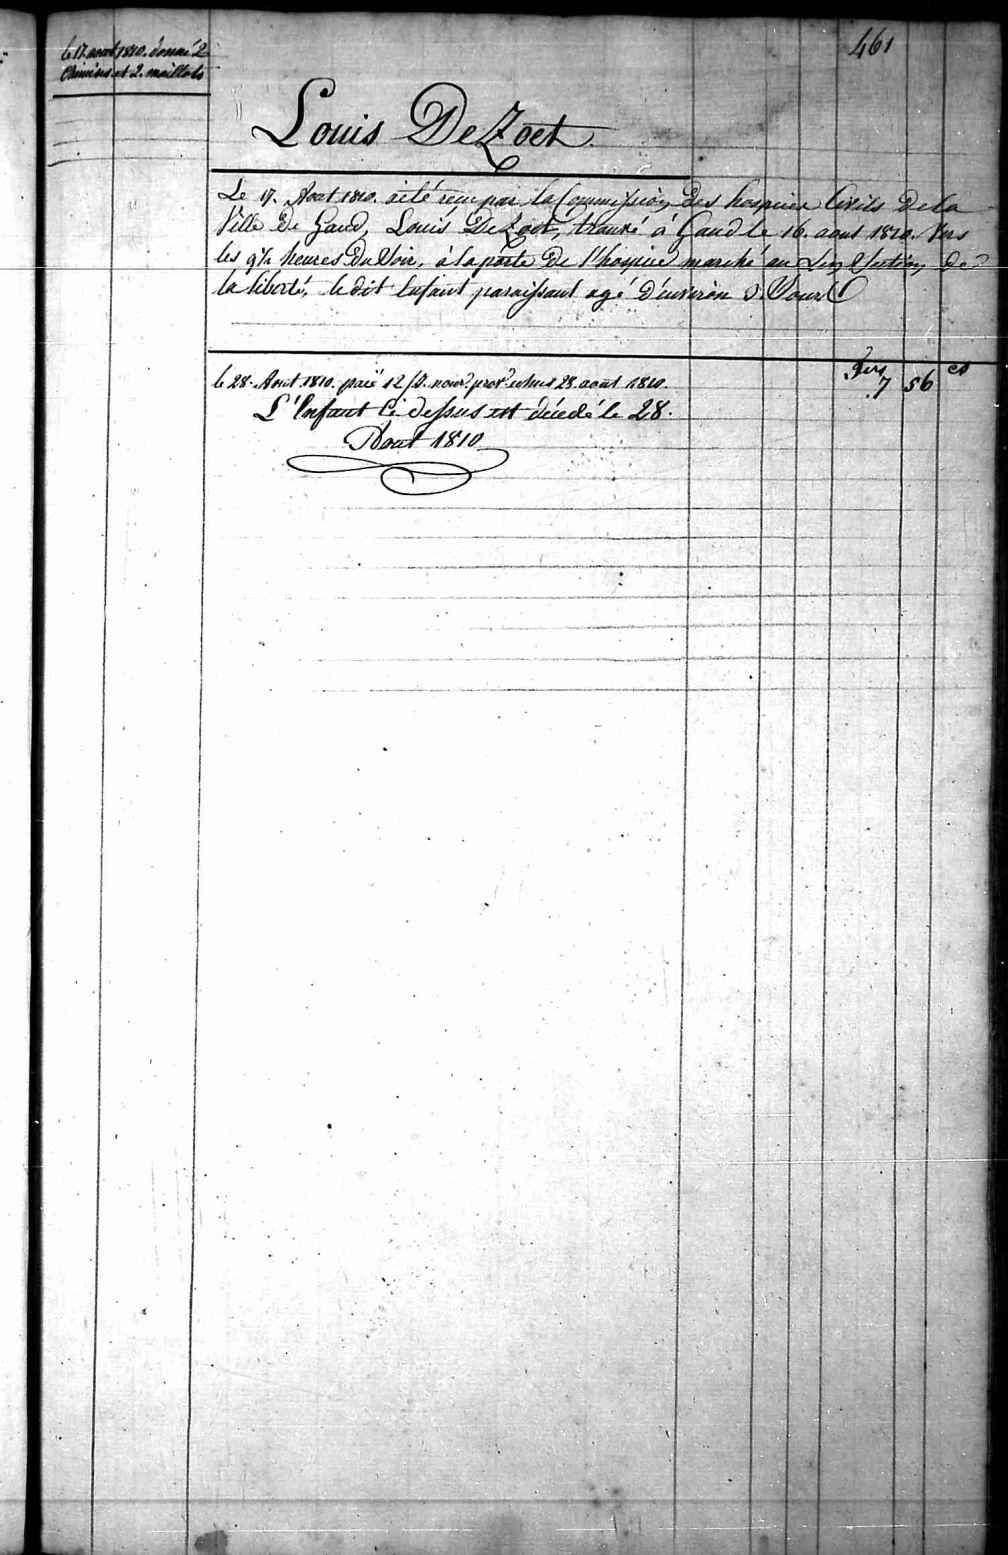 461
le 17. aout 1810. donné 2
Chemises et 2. maillots
Louis De Zoet.
Le 17. Aout 1810. a été reçu par la Commission des hospices Civils de la
Ville de Gand, Louis De Zoet, trouvé à Gand le 16. aout 1810. Vers
les 9½ heures du Soir, à la porte de l'hospice marché au Lin Section de
la liberté, le dit Enfant paraissant agé d'environ 8. Jours
le 28. Aout 1810. paié 12 nour. prov. 28. aout 1810. 7 56
L'Enfant Ci dessus est décedé le 28.
Aout 1810